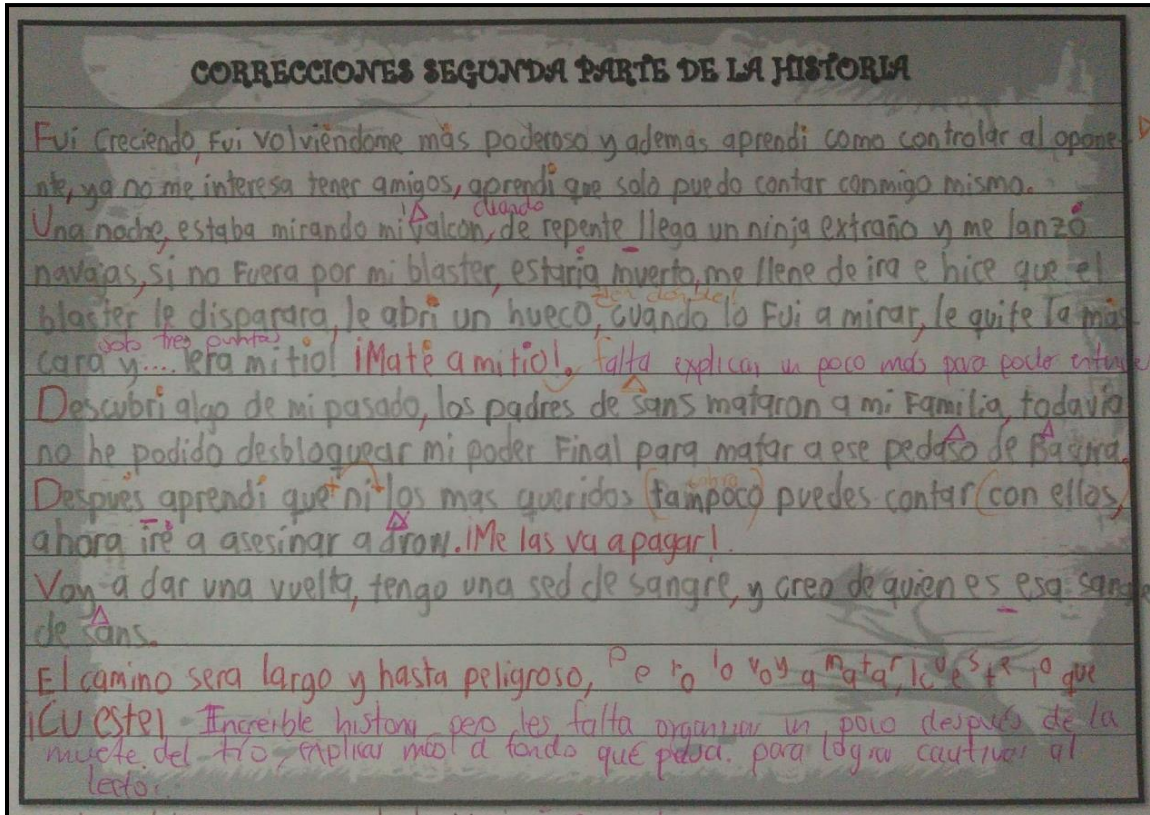 CORRECCIONES SEGUNDA PARTE DE LA HISTORIA
Fui creciendo, Fui volviéndome más poderoso y además aprendi como controlar al opone-
nte, ya no me interesa tener amigos, aprendi que solo puedo contar conmigo mismo.
cuando
Una noche, estaba mirando mi valcon, de repente llega un ninja extraño y me lanzó
navajas, si no Fuera por mi blaster, estaria muerto, me llene de ira e hice que el
blaster le disparara, le abri un hueco, cuando lo Fui a mirar, le quite la más
solo tres puntos
cara y.... ¡era mi tio! ¡Maté a mi tio!. falta explicar un poco más para poder
Descubri algo de mi pasado, los padres de sans mataron a mi Familia, todavía
no he podido desbloquear mi poder Final para matar a ese pedaso de Bacura.
sobra
Después aprendí que ni los mas queridos (tampoco) puedes contar (con ellos,)
ahora iré a asesinar a drow. ¡Me las va a pagar!
Voy a dar una vuelta, tengo una sed de sangre, y creo de quien es esa sangre
de sans.
El camino sera largo y hasta peligroso, Pero lo voy a matar, ¡cueste lo que
¡CUeste! Increible historia pero les falta organizar un poco después de la
muete del tío, explicar mas a fondo que pasa. para lograr cautivar al
lector.